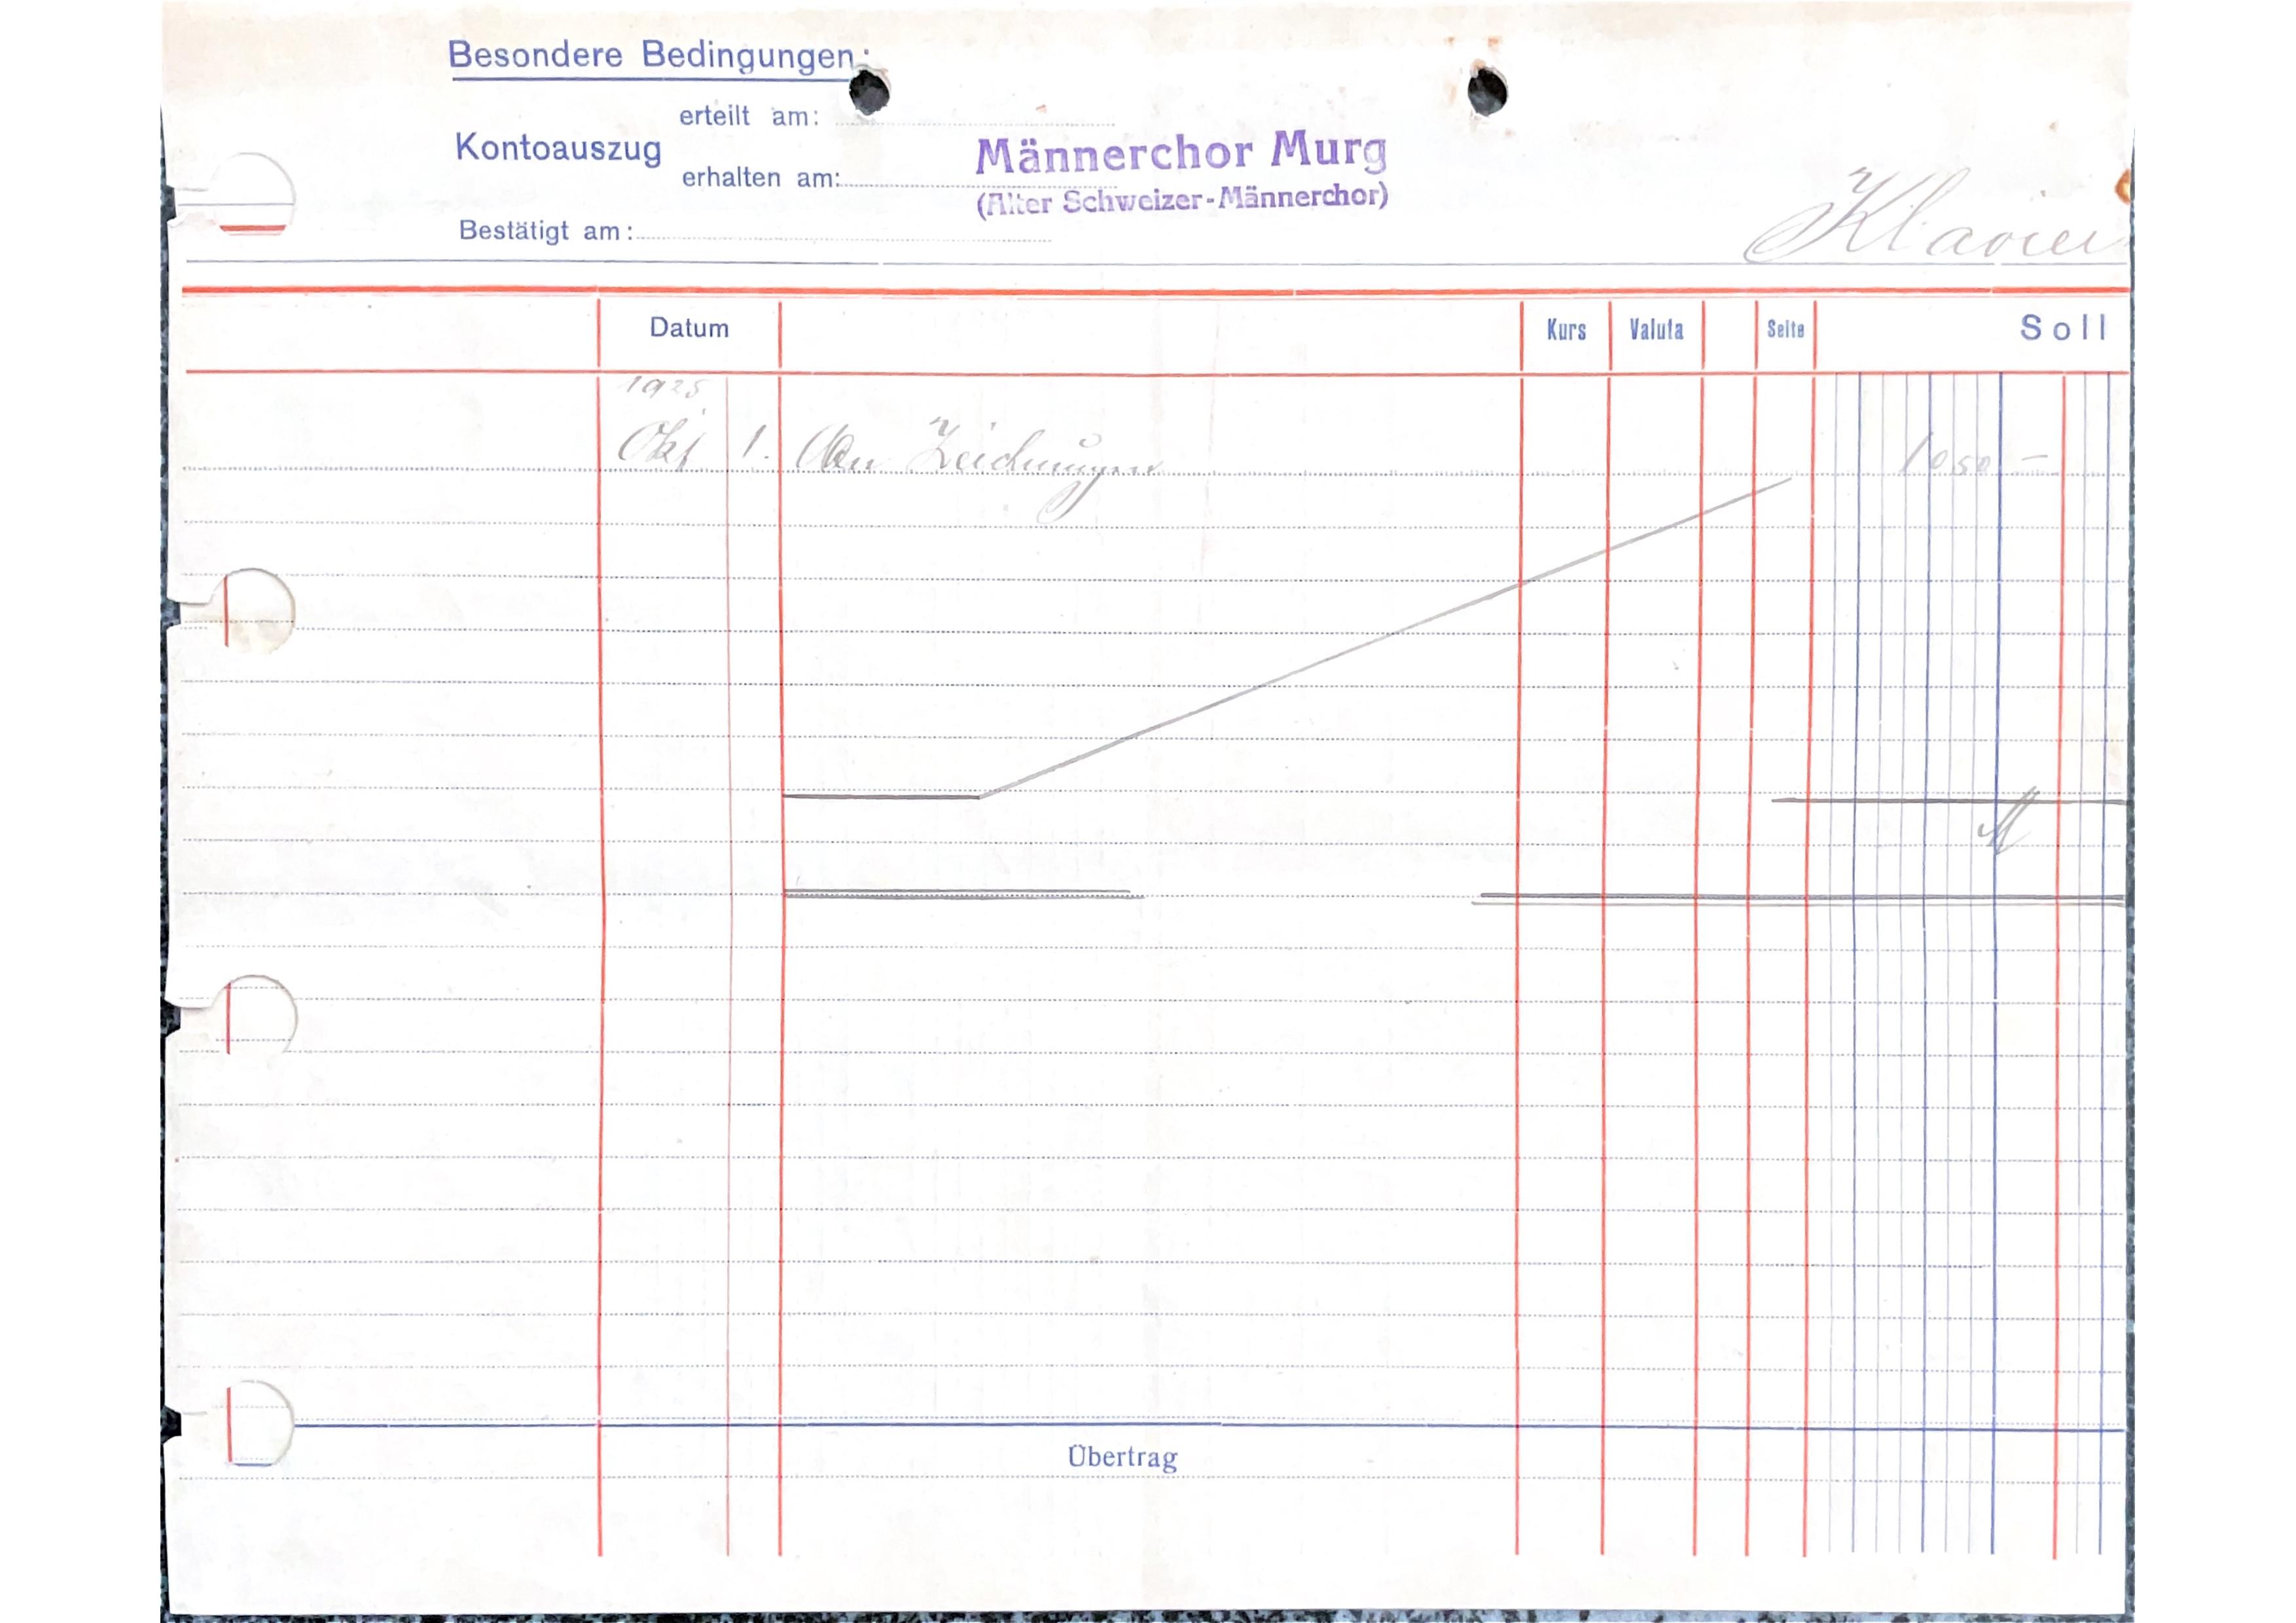 Besondere Bedingungen:
Kontoauszug erteilt am:
erhalten am:
Bestätigt am:
Männerchor Murg
(Alter Schweizer-Männerchor)
Klavier
Datum Kurs Valuta Seite Soll
1925
Okt 1. An Zeichnungen 1050 –
Übertrag